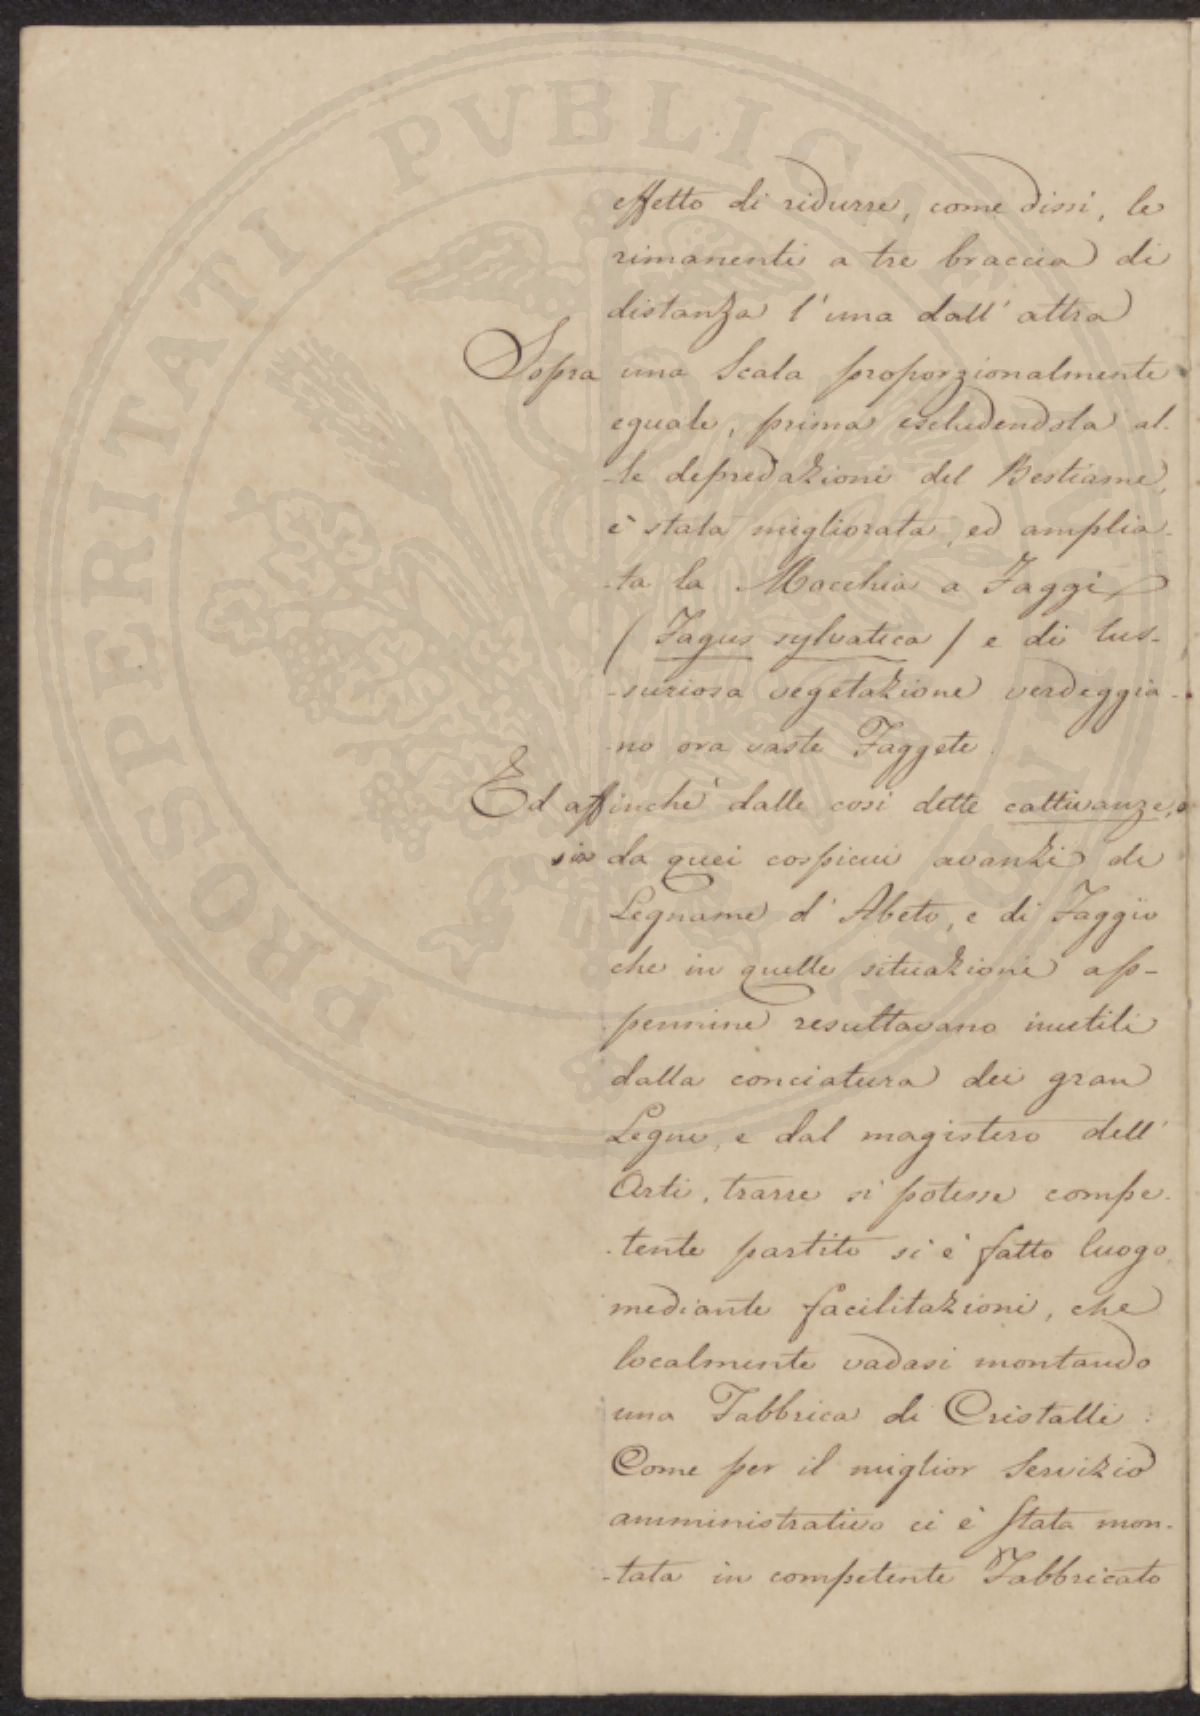 PROSPERITATI PVBLICAE
effetto di ridurre, come dissi, le
rimanenti a tre braccia di
distanza l'una dall'altra
Sopra una Scala proporzionalmente
eguale, prima escludendola al-
-le depredazioni del Bestiame,
è stata migliorata, ed amplia-
-ta la Macchia a Faggi
(Fagus sylvatica) e di lus-
-suriosa vegetazione verdeggia-
-no ora vaste Faggete.
Ed affinchè dalle così dette cattivanze, o
sia da quei cospicui avanzi di
Legname d'Abeto, e di Faggio
che in quelle situazioni ap-
pennine resultavano inutili
dalla conciatura dei gran
Legni, e dal magistero dell'
Arti, trarre si potesse compe-
-tente partito si è fatto luogo,
mediante facilitazioni, che
localmente vadasi montando
una Fabbrica di Cristalli:
Come per il miglior Servizio
amministrativo ci è stata mon-
-tata in competente Fabbricato